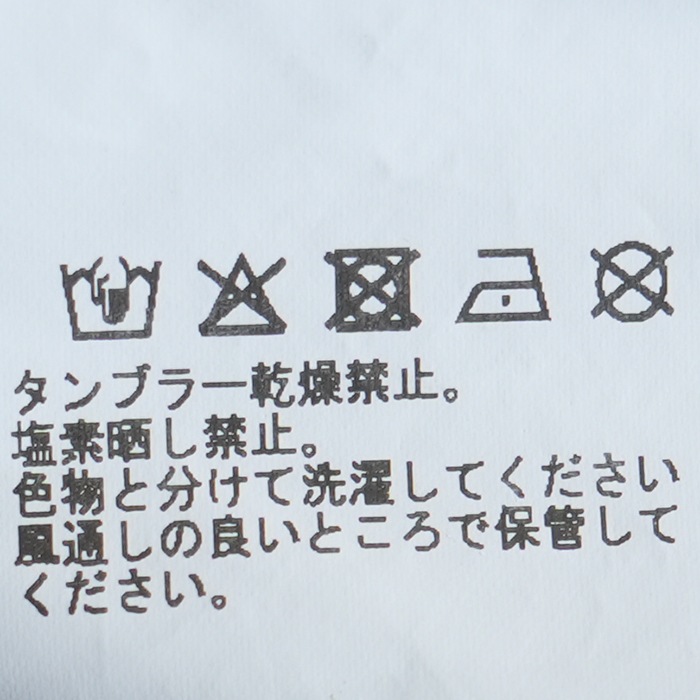 タンブラー乾燥禁止。
塩素晒し禁止。
色物と分けて洗濯してください
風通しの良いところで保管して
ください。